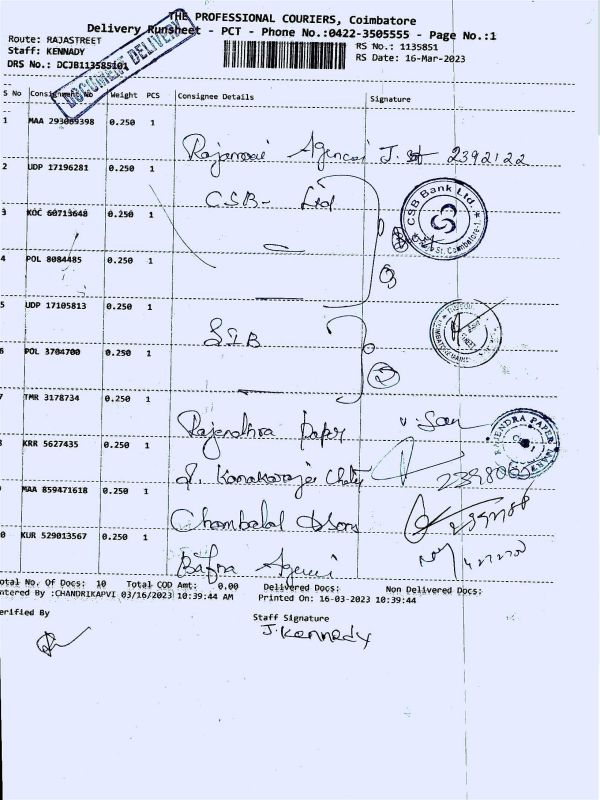 THE PROFESSIONAL COURIERS, Coimbatore
Delivery Runsheet - PCT - Phone No.:0422-3505555 - Page No.:1
DOCUMENT DELIVERY
Route: RAJASTREET
RS No.: 1135851
Staff: KENNADY
RS Date: 16-Mar-2023
DRS No.: DCJB113585101
S No Consignment No Weight PCS Consignee Details Signature
1 MAA 293089398 0.250 1
Agencei J. 2392122
2 UDP 17196281 0.250 1
CSB - Ltd
CSB Bank Ltd.
St. Coimbatore-1
3 KOC 60713648 0.250 1
4 POL 8084485 0.250 1
5 UDP 17105813 0.250 1
SIB
6 POL 3704700 0.250 1
2
7 TMR 3178734 0.250 1
Rajendhra Paper
RAJENDRA PAPER MART
8 KRR 5627435 0.250 1
Kanakaraja Chetty
9 MAA 859471618 0.250 1
Chambalal &Sons
0 KUR 529013567 0.250 1
Bafna Agenci
otal No. Of Docs: 10 Total COD Amt: 0.00 Delivered Docs: Non Delivered Docs:
ntered By :CHANDRIKAPVI 03/16/2023 10:39:44 AM Printed On: 16-03-2023 10:39:44
erified By
Staff Signature
J. Kennedy